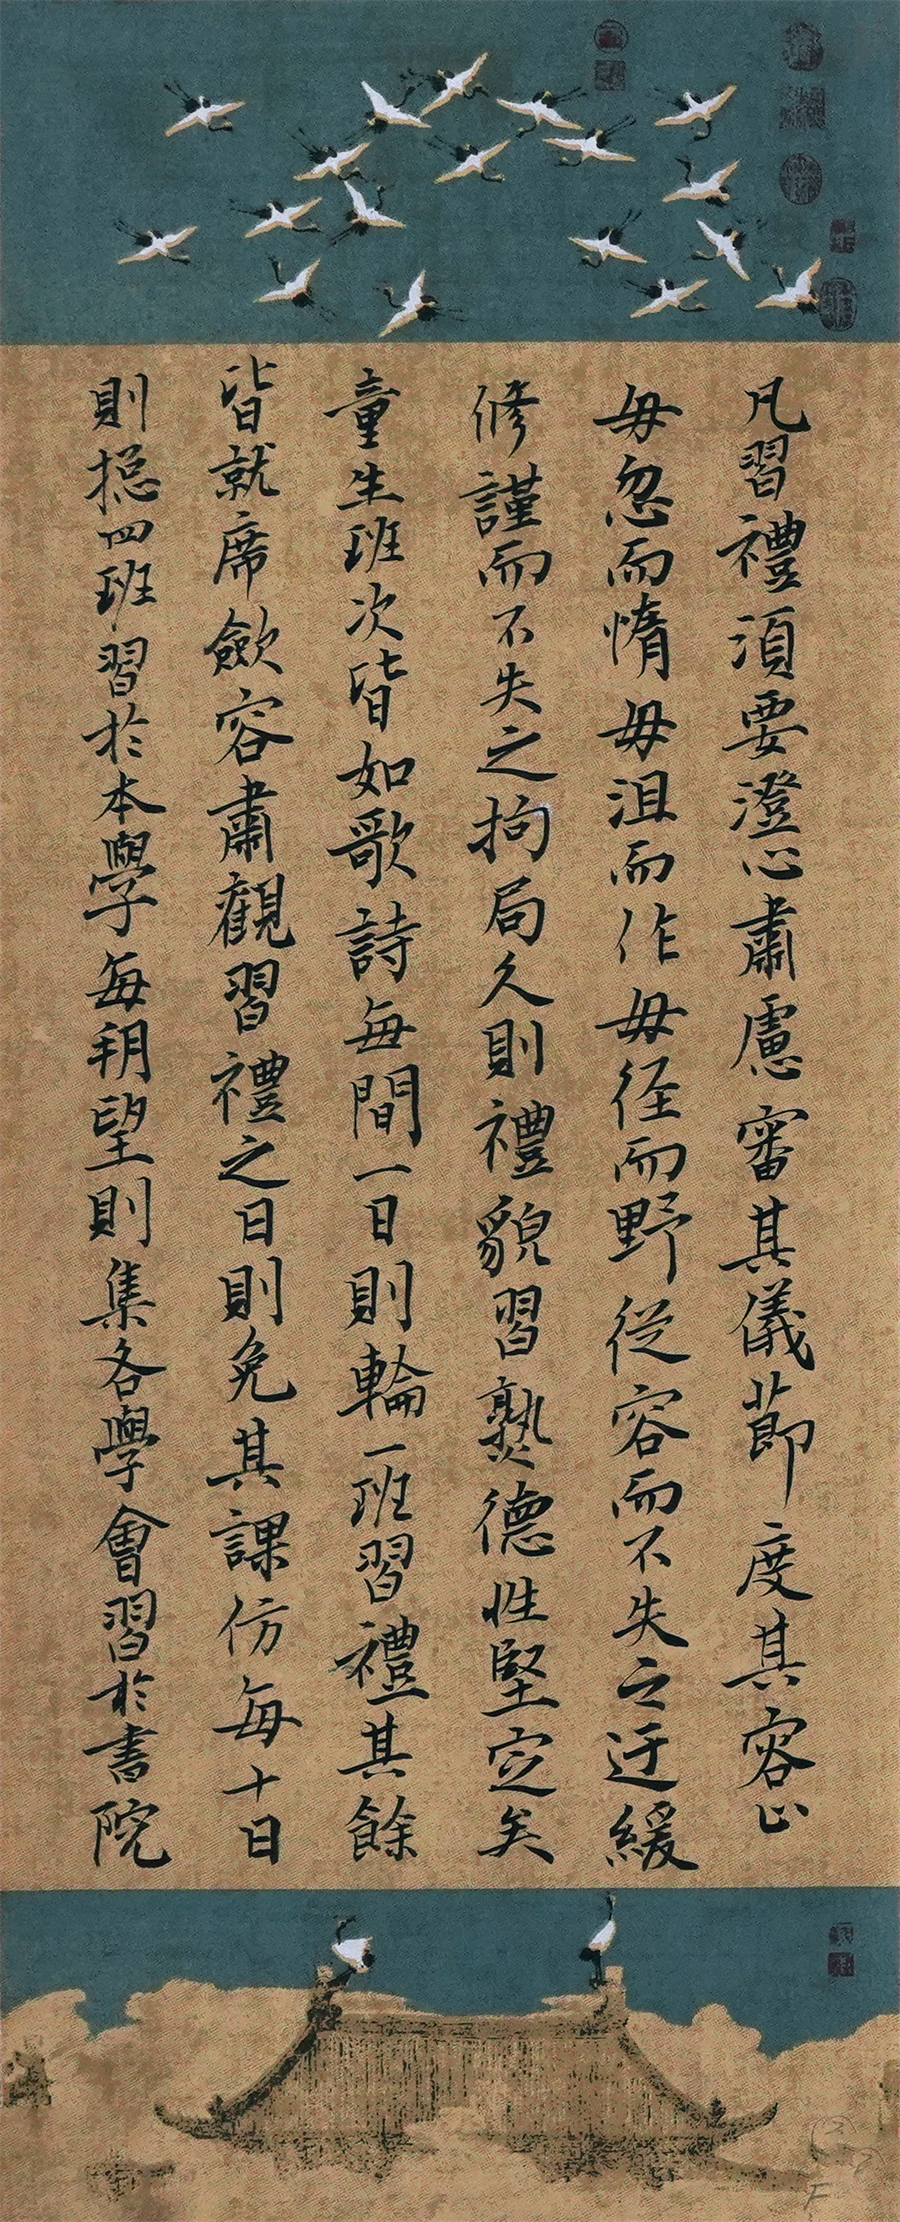 凡習禮須要澄心肅慮審其儀節度其容止
毋忽而惰毋沮而怍毋径而野從容而不失之迂緩
修謹而不失之拘局久則禮貌習熟德性堅定矣
童生班次皆如歌詩每間一日則輪一班習禮其餘
皆就席斂容肅觀習禮之日則免其課仿每十日
則揔四班習於本學每朔望則集各學會習於書院